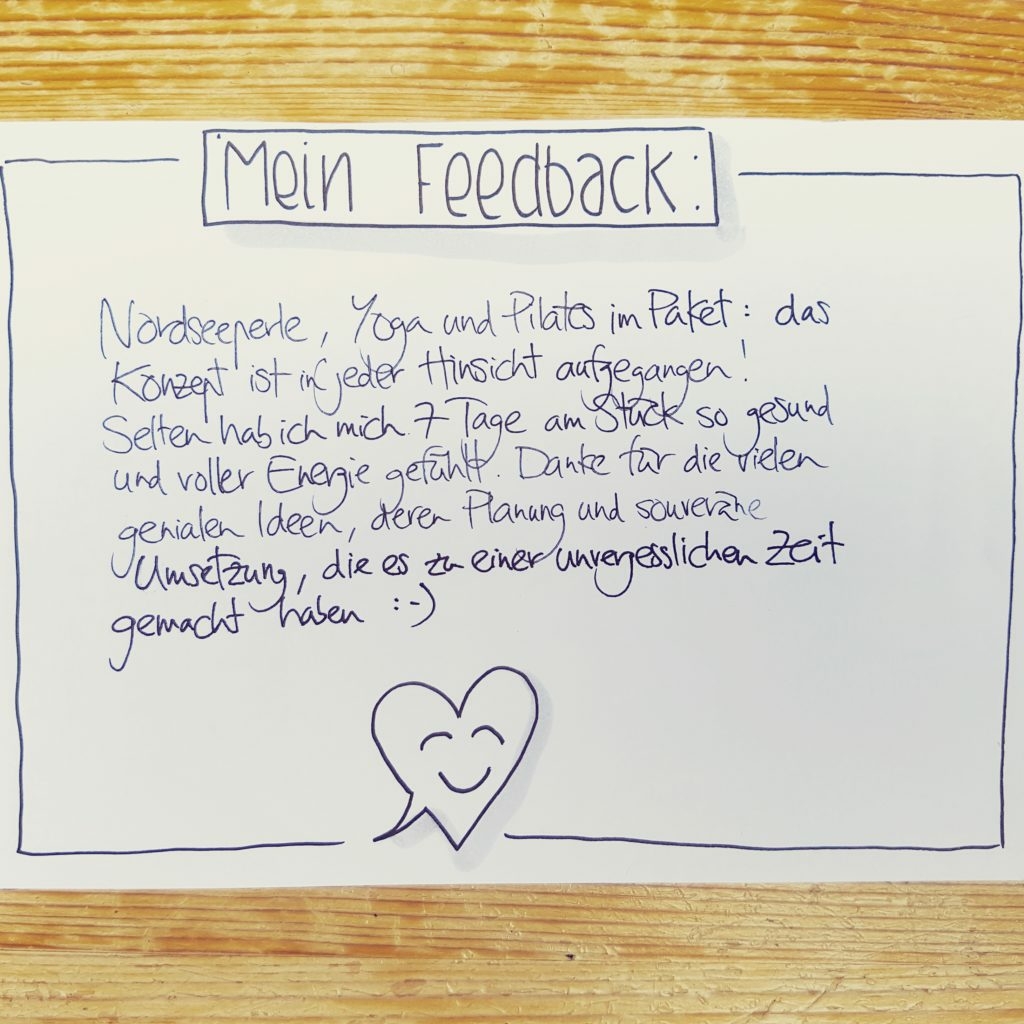 Mein Feedback:
Nordseeperle, Yoga und Pilates im Paket: das
Konzept ist in jeder Hinsicht aufgegangen!
Selten hab ich mich 7 Tage am Stück so gesund
und voller Energie gefühlt. Danke für die vielen
genialen Ideen, deren Planung und souveräne
Umsetzung, die es zu einer unvergesslichen Zeit
gemacht haben :-)